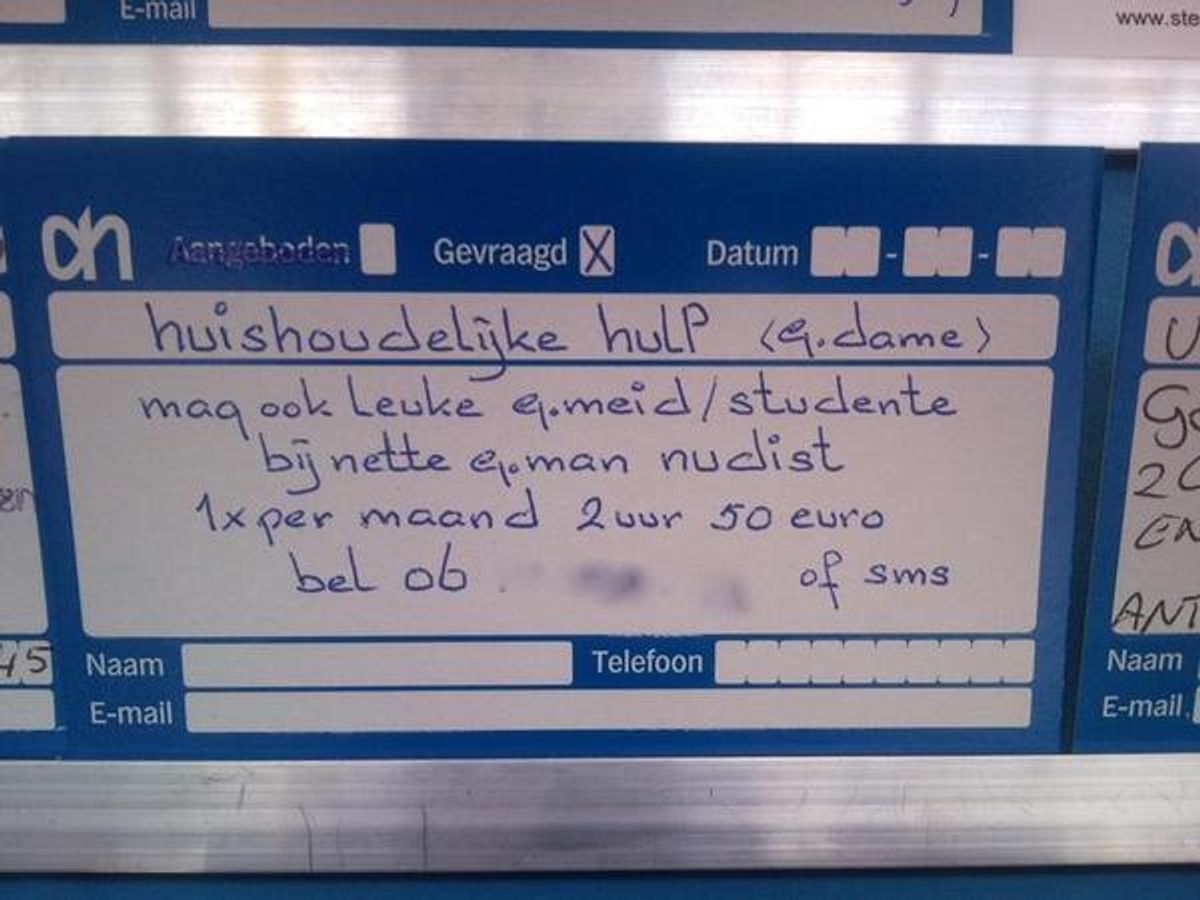 E-mail
www.ste
ah Aangeboden Gevraagd X Datum - -
huishoudelijke hulp (g.dame)
mag ook leuke g.meid/studente
bij nette g.man nudist
1x per maand 2 uur 50 euro
bel 06 of sms
Naam Telefoon
E-mail
45
20
EN
ANT
Naam
E-mail